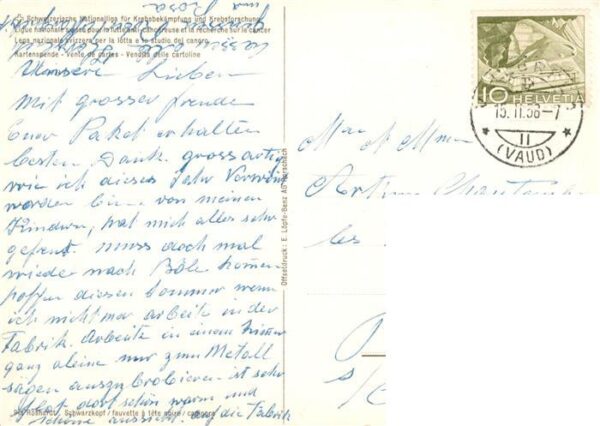 Schweizerische Nationalliga für Krebsbekämpfung und Krebsforschung
Ligue nationale suisse pour la lutte anticancéreuse et la recherche sur le cancer
Lega nazionale svizzera per la lotta e lo studio del cancro
Kartenspende - Vente de cartes - Vendita delle cartoline
Unsere Lieben
Mit grosser freude
Euer Paket erhalten
besten Dank. grossartig
wie ich dieses Jahr
worden bin von meinen
Kindern, hat mich alles sehr
gefreut. muss doch mal
wieder nach Bôle kommen
hoffen diesen Sommer wenn
ich nicht mer arbeite in der
Fabrik. Arbeite in einem
ganz aleine nur zum Metall
sägen auszubrobieren ist sehr
dort schön warm und
schöne aussicht auf die Fabrik
Schwarzkopf / fauvette à tête noire / capinera
Offsetdruck: E. Löpfe-Benz AG Rorschach
10 HELVETIA
15.II.56-7
II
(VAUD)
Mr et Mme
les